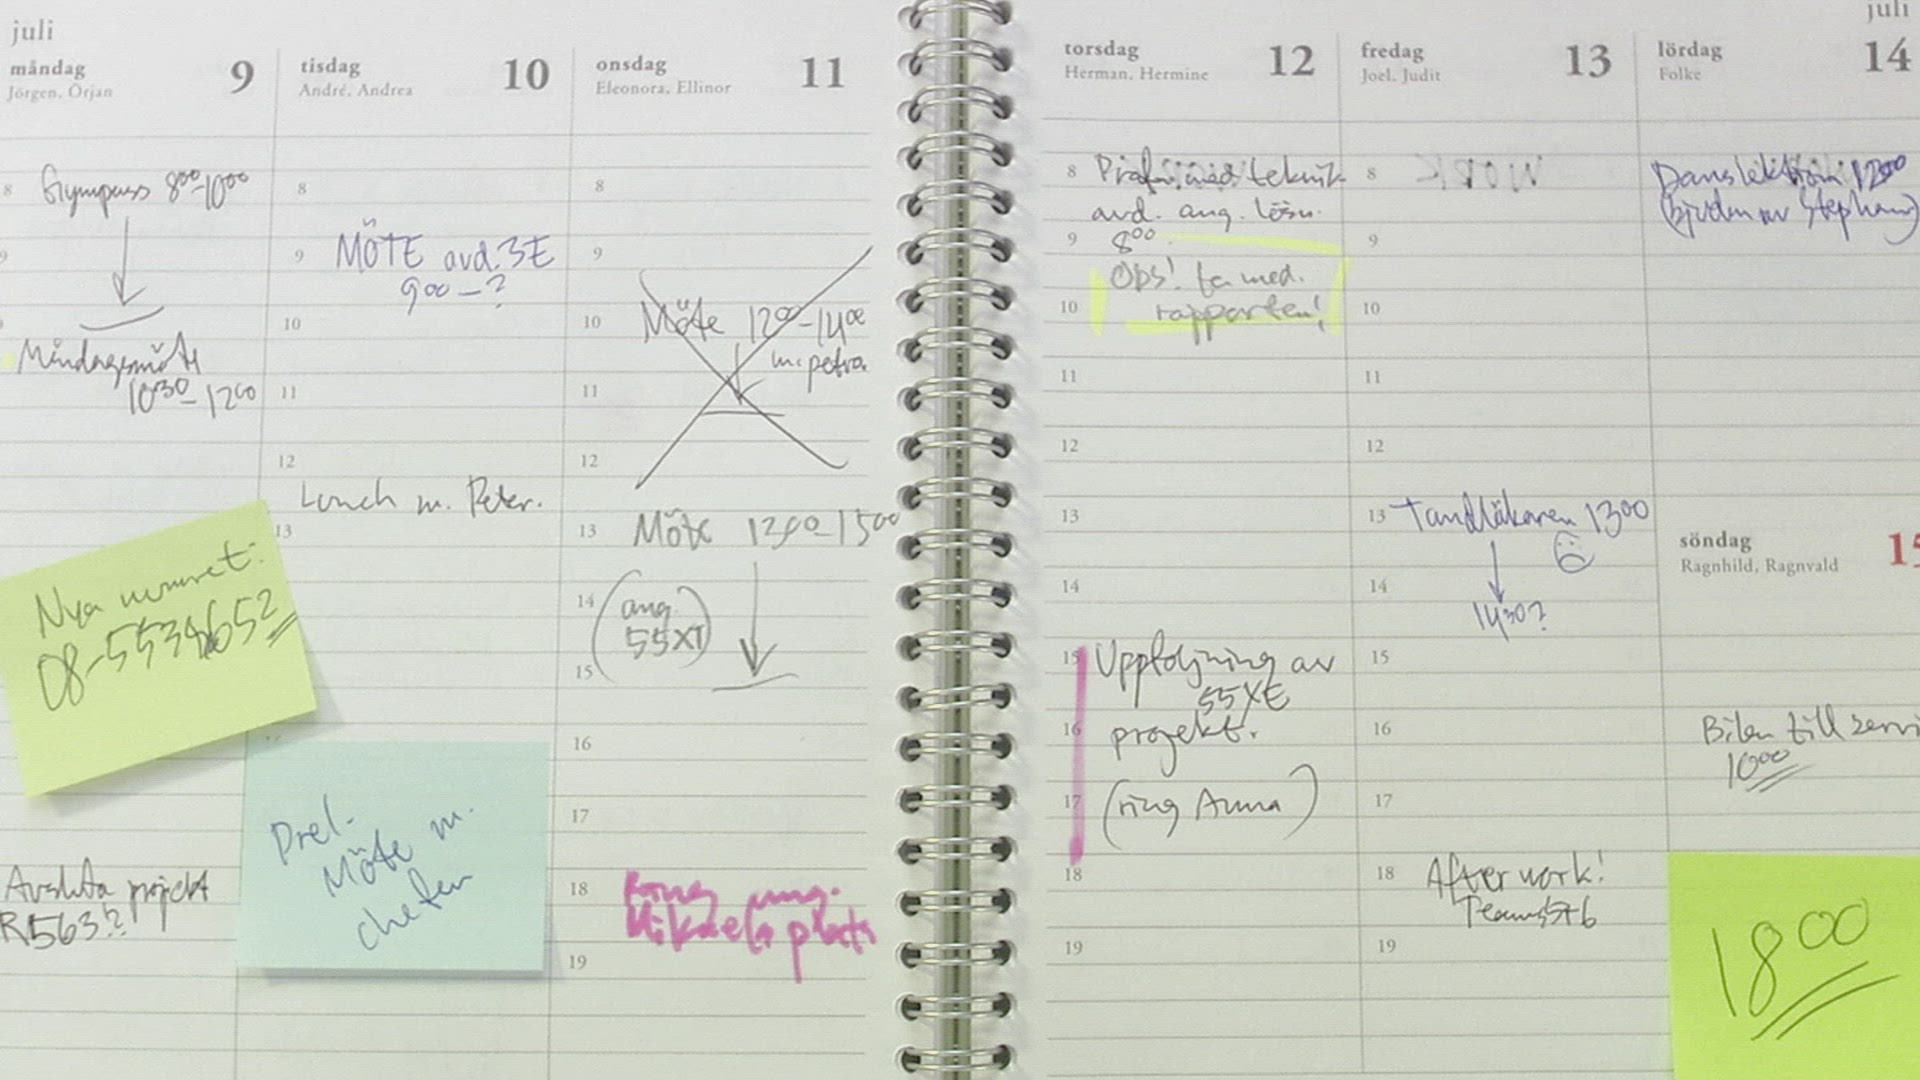 juli
måndag 9
Jörgen, Örjan
8 Gympass 800-1000
9
Måndagsmöte
1030-1200
Nya numret:
Avsluta projekt
R563??
tisdag 10
André, Andrea
8
9 MÖTE avd. 3E
900-?
10
11
12
Lunch m. Peter.
13
Prel.
Möte m.
chefen
onsdag 11
Eleonora, Ellinor
8
9
10 Möte 1200-1400
m. petra
11
12
13 Möte 1300-1500
14 (ang.
55XT)
15
16
17
18 Ring ang.
Mikaela
19
juli
torsdag 12
Herman, Hermine
8 teknik
avd. ang.
9 800
OBS! ta med.
10 rapporten!
11
12
13
14
15 Uppföljning av
55XE
16 projekt.
17 (ring Anna)
18
19
fredag 13
Joel, Judit
8
9
10
11
12
13 Tandläkaren 1300
14
1430?
15
16
17
18 After work!
19
lördag 14
Folke
1200
(bjuden av Stephan)
söndag 15
Ragnhild, Ragnvald
Bilen till servi
1000
1800